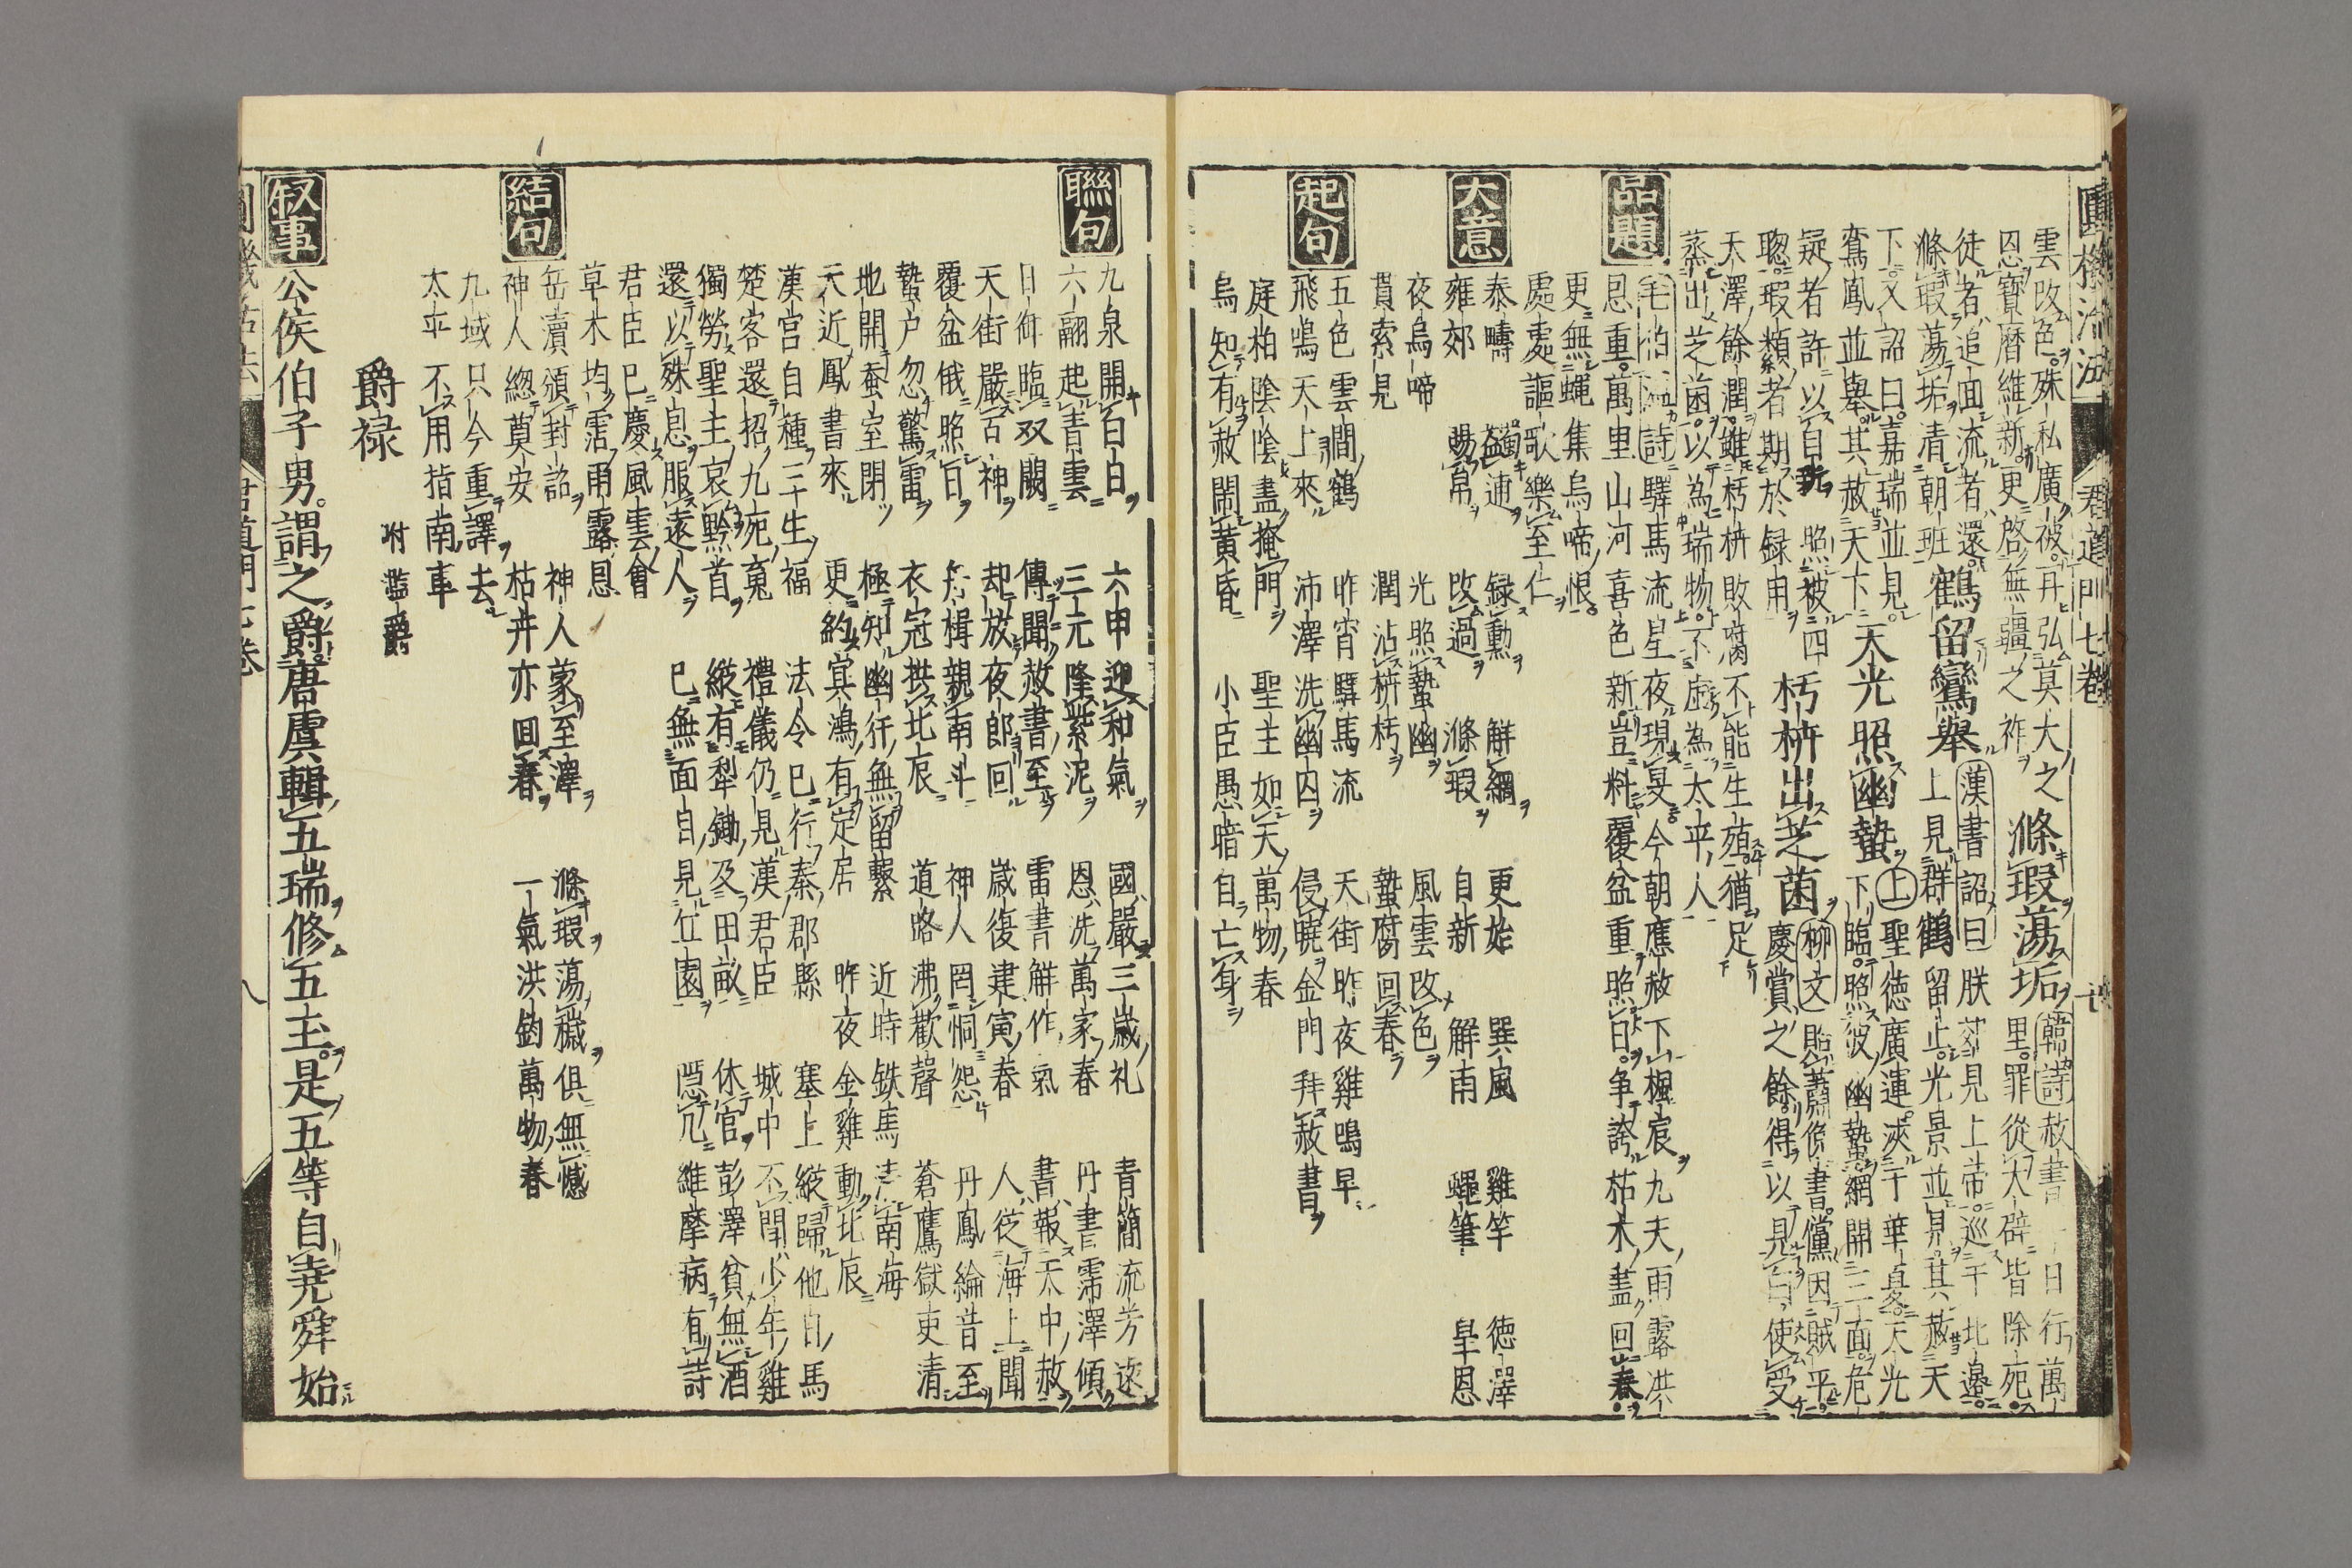 圓機活法 君道門七卷
雲改色殊私廣被再弘莫大之
恩寶曆維新更啓無疆之祚
滌瑕蕩垢
韓詩 赦書一日行萬
里罪從大辟皆除死
徒者追回流者還
滌瑕蕩垢清朝班
鶴留鸞舉
漢書詔曰 朕郊見上帝巡于北邊
上見群鶴留止光景並見其赦天
下又詔曰嘉瑞並見
鸞鳳並舉其赦天下
天光照幽蟄
上聖德廣運浹于華夏天光
下臨照彼幽蟄網開三面危
疑者許以自新 照被四
聰瑕纇者期於録用
朽枿出芝菌
柳文 貽蕭俛書儻因賊平
慶賞之餘得以見白使受
天澤餘潤雖朽枿敗腐不能生殖猶足
蒸出芝菌以為瑞物不虚為太平人
品題
毛伯温詩 驛馬流星夜現旻今朝應赦下楓宸九天雨露洪
恩重萬里山河喜色新豈料覆盆重照日争誇枯木盡回春
更無蠅集烏啼恨
處處謳歌樂至仁
大意
泰疇 蠲逋 録勲 解網 更始 巽風 雞竿 德澤
雍郊 賜帛 改過 滌瑕 自新 解雨 蠅筆 皐恩
夜烏啼 光照蟄幽 風雲改色
貫索見 潤沾枿朽 蟄腐回春
起句
五色雲間鶴 昨宵驛馬流 天街昨夜雞鳴早
飛鳴天上來 沛澤洗幽囚 侵曉金門拜赦書
庭柏陰陰盡掩門 聖主如天萬物春
烏知有赦鬧黄昏 小臣愚暗自亡身
聯句
九泉開白日 六甲迎和氣 國嚴三歳礼 青簡流芳遠
六翮起青雲 三元隆紫泥 恩洗萬家春 丹書霈澤傾
日御臨双闕 傳聞赦書至 雷書解作氣 書報天中赦
天街嚴百神 却放夜郎回 歳復建寅春 人從海上聞
覆盆俄照白 舟楫親南斗 神人罔恫怨 丹鳳綸音至
蟄户忽驚雷 衣冠拱北辰 道路沸歡聲 蒼鷹獄吏清
地開蚕室閉 極知幽犴無留繫 近時鉄馬清南海
天近鳳書來 更約冥鴻有定居 昨夜金雞動北辰
漢宫自種三千生福 法令已行秦郡縣 塞上縱歸他日馬
楚客還招九死寃 禮儀仍見漢君臣 城中不聞少年雞
獨勞聖主哀黔首 縱有犁鋤及田畝 休官彭澤貧無酒
還以殊息服遠人 已無面目見丘園 隱几維摩病有詩
君臣已慶風雲會
草木均霑雨露恩
結句
岳瀆頒封詔 神人蒙至澤 滌瑕蕩穢俱無憾
神人緫奠安 枯卉亦回春 一氣洪鈞萬物春
九域只今重譯去
太平不用指南車
爵禄 附 濫爵
叙事
公侯伯子男謂之爵唐虞輯五瑞修五玉是五等自尭舜始
八